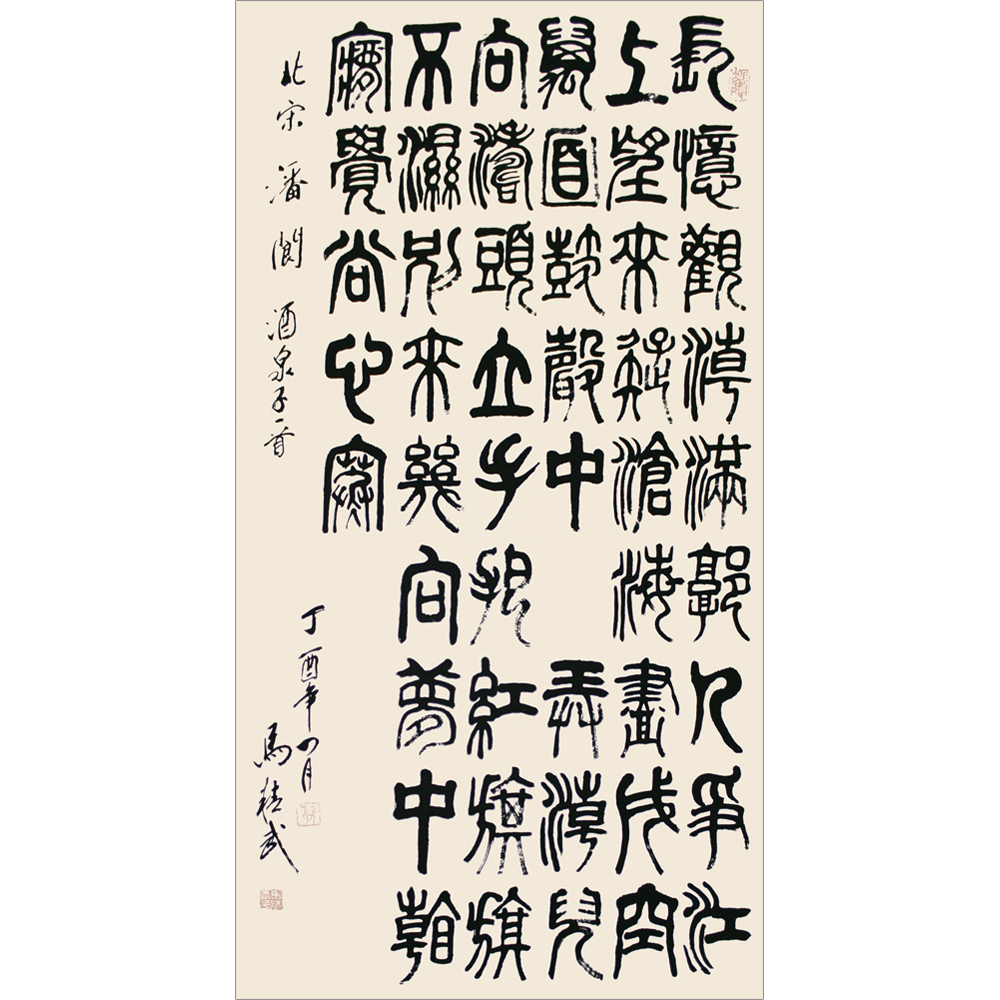 長憶觀潮滿郭人爭江
上望來疑滄海盡成空
萬面鼓聲中 弄潮兒
向濤頭立手把紅旗旗
不濕別來幾向夢中看
夢覺尚心寒
北宋潘閬酒泉子一首
丁酉年四月
馬精武